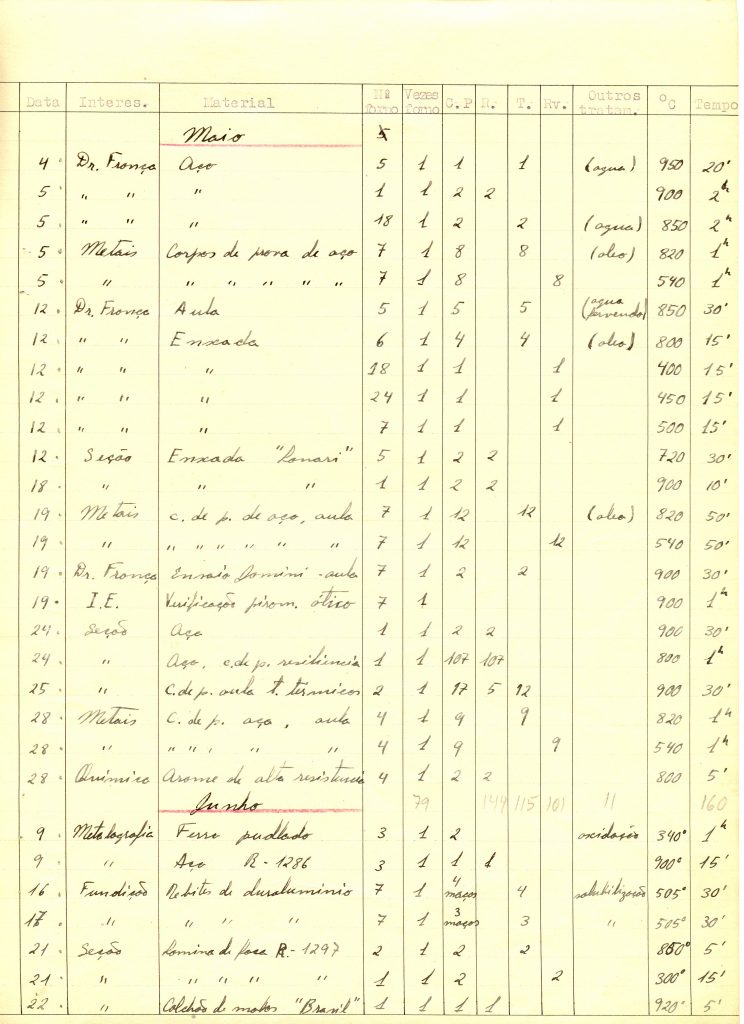 Data Interes. Material Nº forno Vezes forno C.P R. T. Rv. Outros tratam. ºC Tempo
Maio
4 Dr. França Aço 5 1 1 1 (agua) 950 20'
5 " " " 1 1 2 2 900 2h
5 " " " 18 1 2 2 (agua) 850 2h
5 Metais Corpos de prova de aço 7 1 8 8 (oleo) 820 1h
5 " " " " " " 7 1 8 8 540 1h
12 Dr. França Aula 5 1 5 5 (agua fervendo) 850 30'
12 " " Enxada 6 1 4 4 (oleo) 800 15'
12 " " " 18 1 1 1 400 15'
12 " " " 24 1 1 1 450 15'
12 " " " 7 1 1 1 500 15'
12 Seção Enxada "Lanari" 5 1 2 2 720 30'
18 " " " 1 1 2 2 900 10'
19 Metais c. de p. de aço, aula 7 1 12 12 (oleo) 820 50'
19 " " " " " " " 7 1 12 12 540 50'
19 Dr. França Ensaio Jomini - aula 7 1 2 2 900 30'
19 I.E. Verificação pirom. ótico 7 1 900 1h
24 Seção Aço 1 1 2 2 900 30'
24 " Aço, c. de p. resiliencia 1 1 107 107 800 1h
25 " C. de p. aula t. térmicos 2 1 17 5 12 900 30'
28 Metais C. de p. aço, aula 4 1 9 9 820 1h
28 " " " , " " 4 1 9 9 540 1h
28 Química Arame de alta resistencia 4 1 2 2 800 5'
Junho 79 144 115 101 11 160
9 Metalografia Ferro pudlado 3 1 2 oxidação 340º 1h
9 " Aço R-1286 3 1 1 1 900º 15'
16 Fundição Rebites de duraluminio 7 1 4 maços 4 solubilização 505º 30'
17 " " " " 7 1 3 maços 3 " 505º 30'
21 Seção Lamina de faca R-1297 2 1 2 2 850º 5'
21 " " " " " 1 1 2 2 300º 15'
22 " Colchão de molas "Brasil" 1 1 1 1 920º 5'